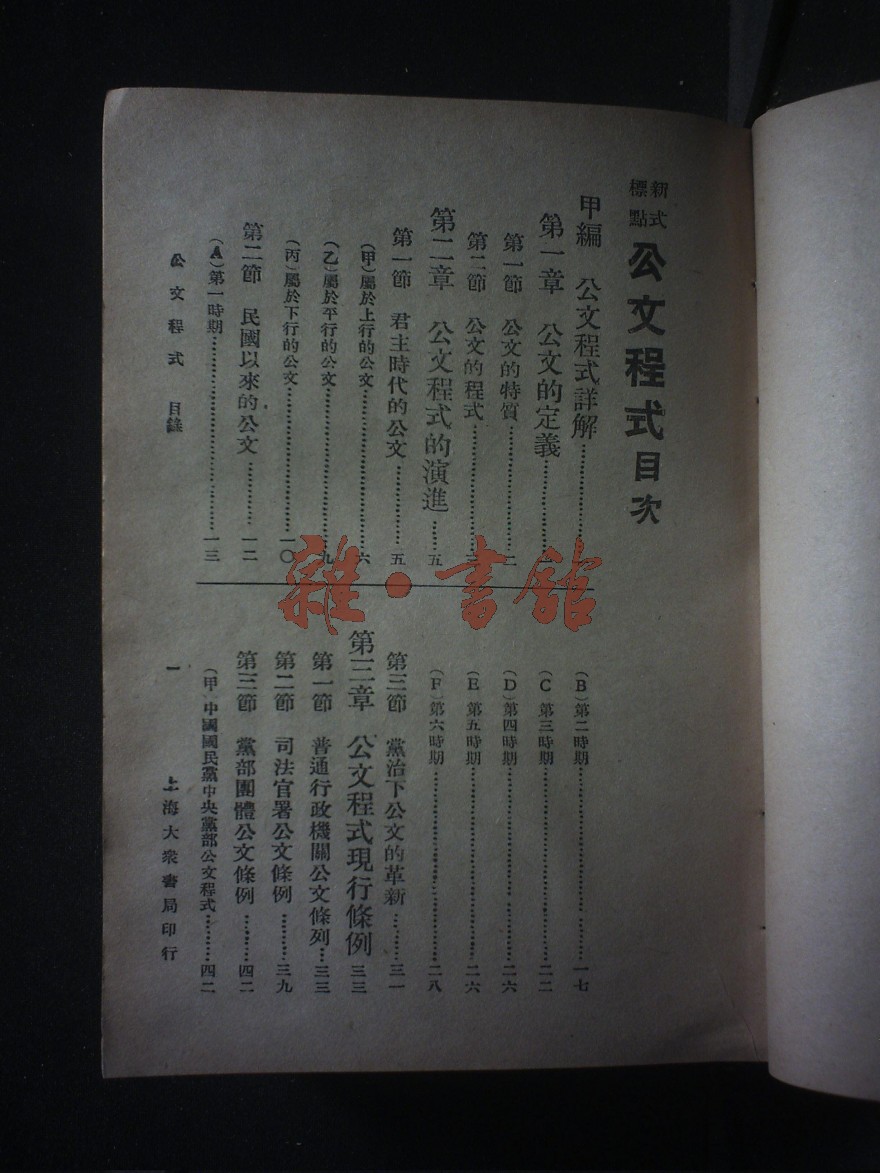 新式標點 公文程式目次
甲編 公文程式詳解
第一章 公文的定義
第一節 公文的特質……二
第二節 公文的程式
第二章 公文程式的演進……五
第一節 君主時代的公文……五
（甲）屬於上行的公文……六
（乙）屬於平行的公文……九
（丙）屬於下行的公文……一〇
第二節 民國以來的公文……一二
（A）第一時期……一三
（B）第二時期……一七
（C）第三時期……二二
（D）第四時期……二六
（E）第五時期……二六
（F）第六時期……二八
第三節 黨治下公文的革新……三一
第三章 公文程式現行條例 三三
第一節 普通行政機關公文條列…三三
第二節 司法官署公文條例……三九
第三節 黨部團體公文條例……四二
（甲）中國國民黨中央黨部公文程式……四二
公文程式 目錄
一
上海大衆書局印行
雜·書館